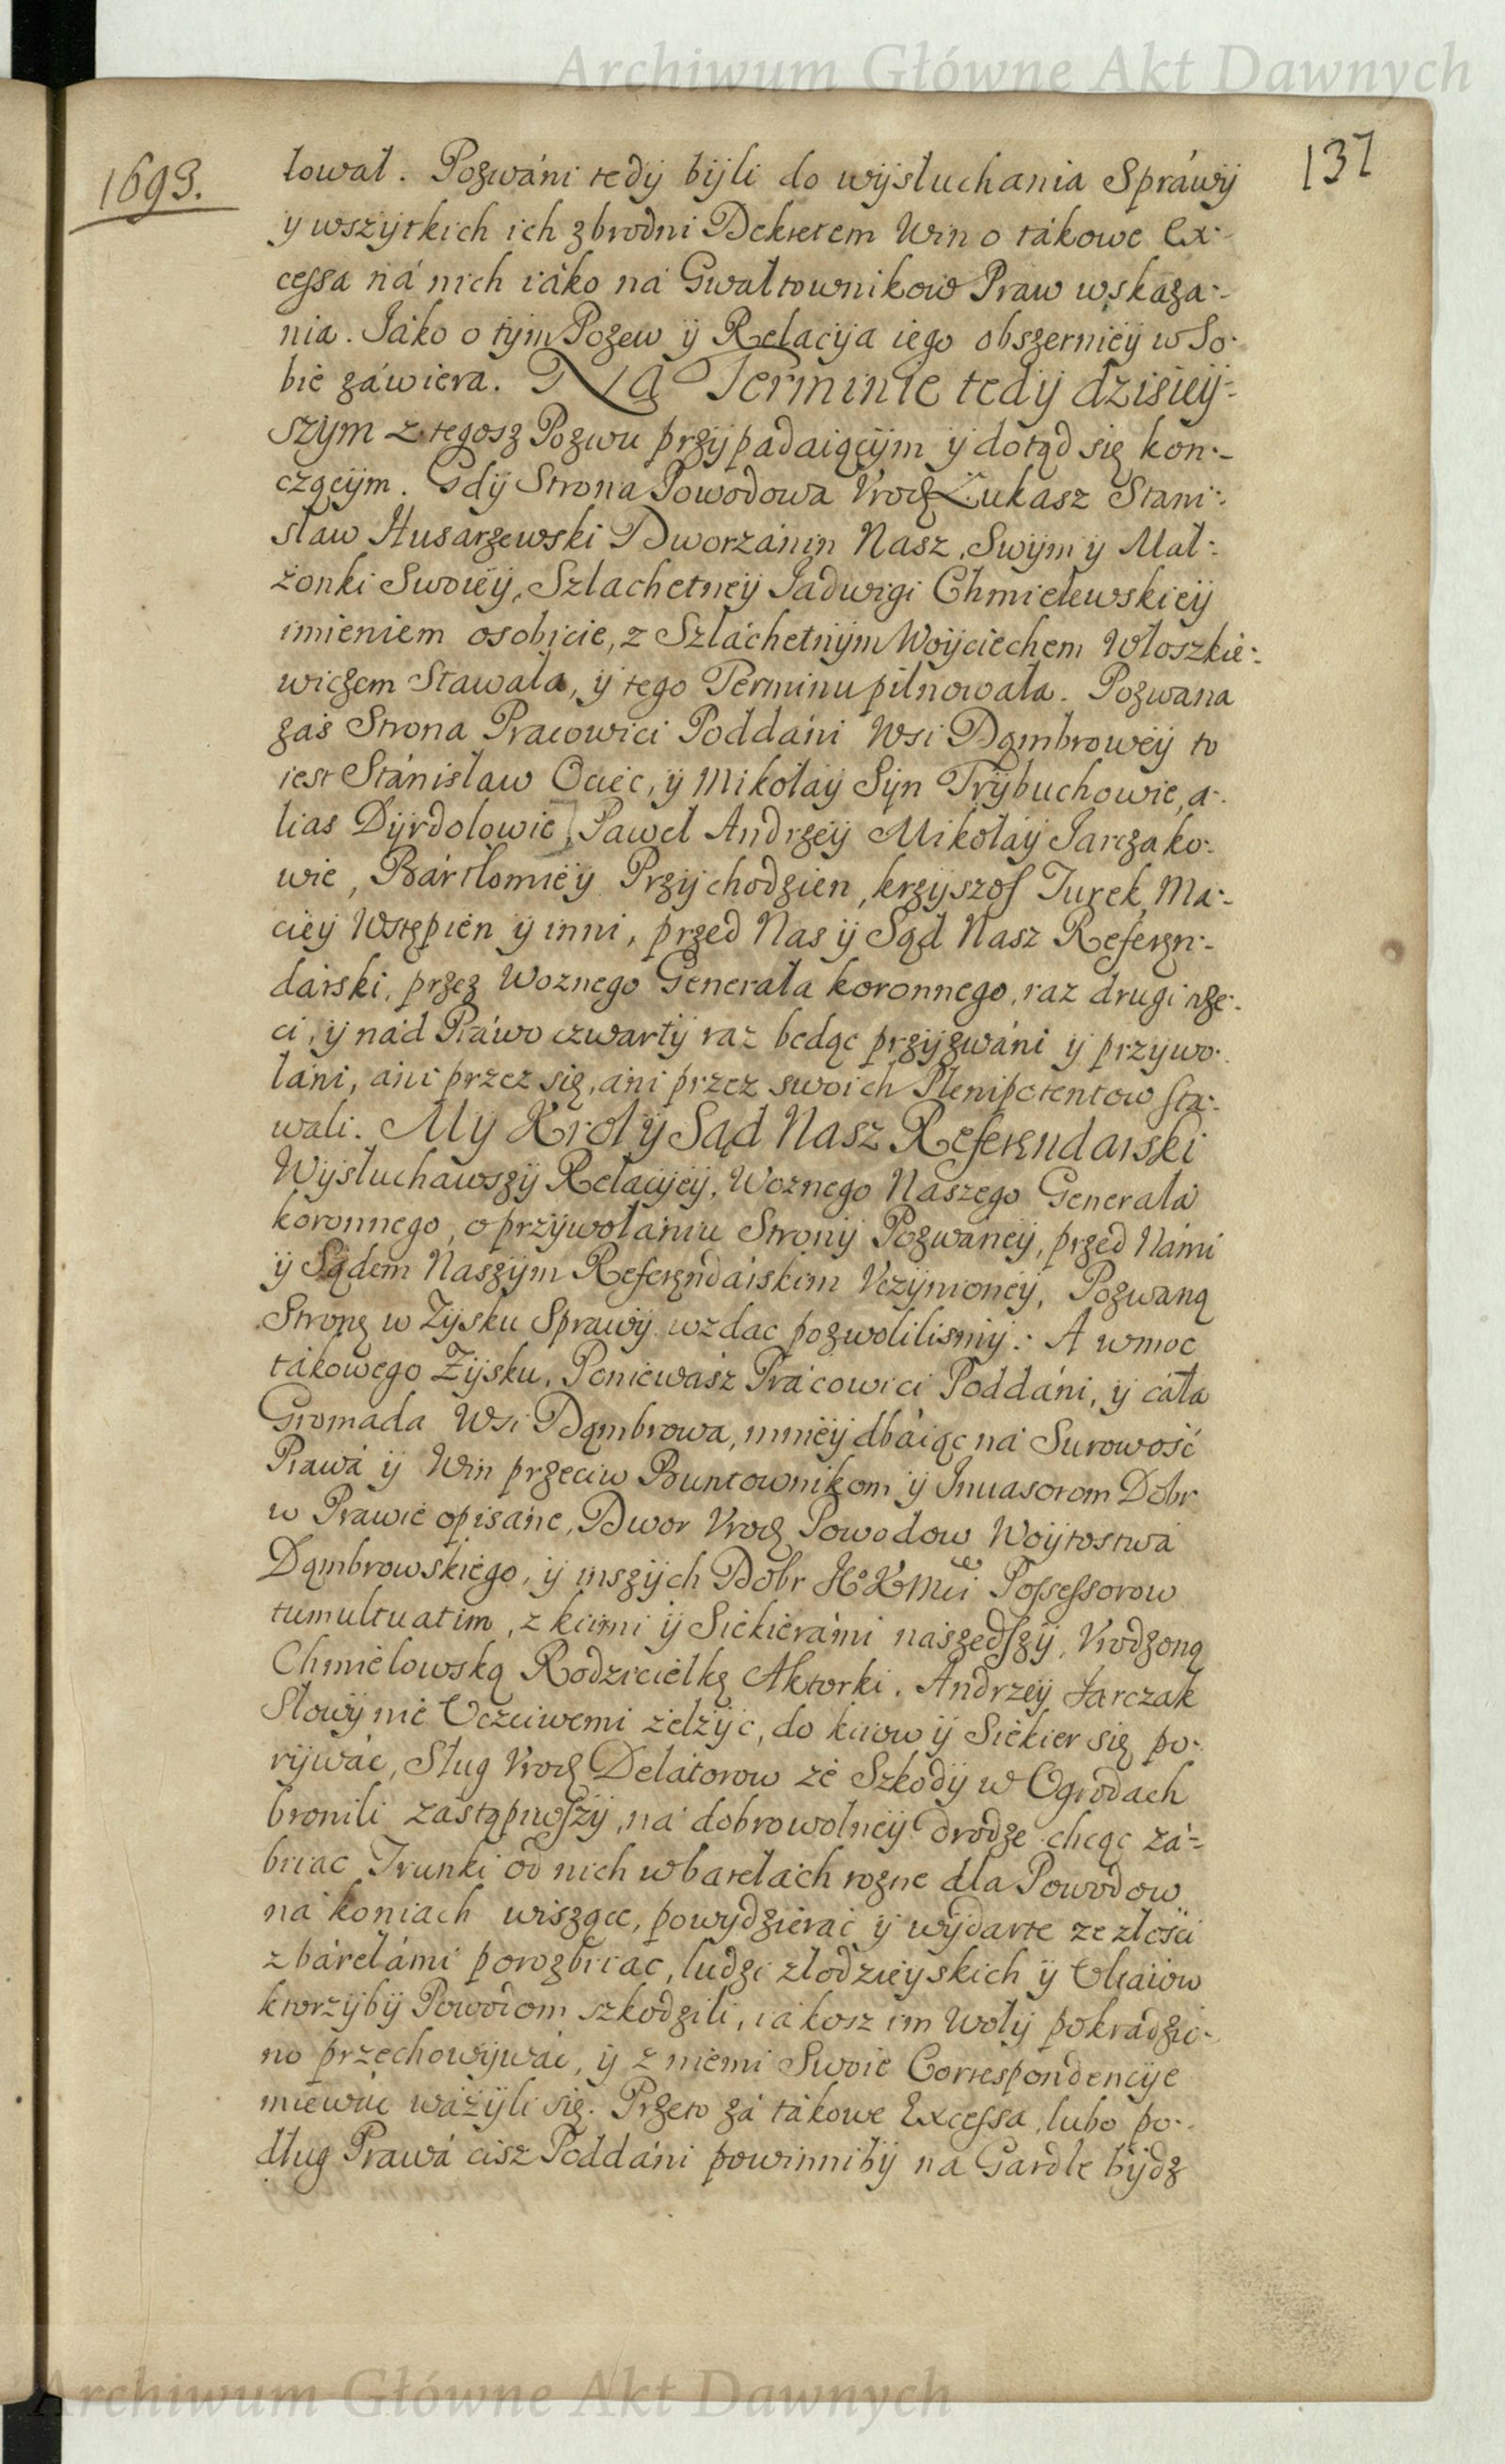 Archiwum Główne Akt Dawnych
137
1693.
łował. Pozwáni tedÿ bÿli do wÿsłuchania Spráwÿ
y wszÿtkich ich zbrodni Dekretem Win o tákowe Ex-
cessa ná nich iáko ná Gwałtownikow Praw wskaza-
nia. Jáko o tÿm Pozew ÿ Relacÿa iego obszerniéÿ w So-
bie záwiera. Ná Terminie tedÿ dzisieÿ-
szÿm z tegosz Pozwu przÿpadaiącÿm ÿ dotąd się kon-
czącÿm. Gdÿ Strona Powodowa Vrodz Łukasz Stani-
sław Husarzewski Dworzánin Nasz, Swÿm ÿ Mał-
żonki Swoiéÿ, Szlachetneÿ Jadwigi Chmielewskieÿ
imieniem osobiscie, z Szláchetnÿm Woÿciechem Włoszkie-
wiczem Stawała, ÿ tego Terminu pilnowała. Pozwana
zaś Strona Pracowici Poddáni Wsi Dąmbroweÿ to
iest Stánisław Ociec, ÿ Mikołaÿ Sÿn Trÿbuchowie, a-
lias Dÿrdolowie, Paweł Andrzeÿ Mikołáÿ Jarczako-
wie, Bártłomieÿ Przÿchodzien, krzÿsztof Turek, Ma-
cieÿ Wstępień ÿ inni, przed Nas ÿ Sąd Nasz Referen-
dárski, przez Woznego Generała koronnego, raz drugi trze-
ci, ÿ nád Práwo czwartÿ raz będąc przÿzwáni ÿ przÿwo-
łáni, ani przez się, áni przez swoich Plenipotentow sta-
wali. Mÿ Krol ÿ Sąd Nasz Referendarski
Wÿsłuchawszÿ Relacÿéÿ, Woznego Naszego Generałá
koronnego, o przÿwołániu Stronÿ Pozwáneÿ, przed Námi
ÿ Sądem Naszÿm Referendárskim Vczÿnioneÿ, Pozwaną
Stronę w Zÿsku Sprawÿ wzdac pozwolilismÿ. A wmoc
tákowego Zÿsku, Poniewasz Prácowici Poddáni, ÿ cáła
Gromada Wsi Dąmbrowa, mnieÿ dbáiąc ná Surowość
Prawá ÿ Win przeciw Buntownikom ÿ Inuasorom Dobr
w Prawie opisáne, Dwor Vrodz Powodow Woÿtostwá
Dąmbrowskiego, ÿ inszÿch Dobr JoKMci Possessorow
tumultuatim, z kiimi ÿ Siekierámi naszedszÿ, Vrodzoną
Chmielowską Rodzicielkę Aktorki, Andrzeÿ Jarczak
Słowÿ nie Vczciwemi zelżÿć, do kiiow ÿ Siekier się po-
rÿwác, Sług Vrodz Delátorow że Szkodÿ w Ogrodach
bronili zastąpiwszÿ, ná dobrowolneÿ drodze chcąc zá-
biiac, Trunki od nich wbarełách rozne dla Powodow
ná koniach wiszące, powÿdzierać ÿ wÿdarte ze złości
z bárełámi porozbiiác, ludzi złodzieÿskich ÿ Vltaiow
ktorzÿbÿ Powodom szkodzili, iákosz im Wołÿ pokrádzio-
no przechowÿwác, ÿ z niemi Swoie Correspondencÿe
miewác ważÿli się. Przeto zá tákowe Excessa, lubo po-
dług Prawá cisz Poddáni powinnibÿ ná Gardle bÿdz
Archiwum Główne Akt Dawnych